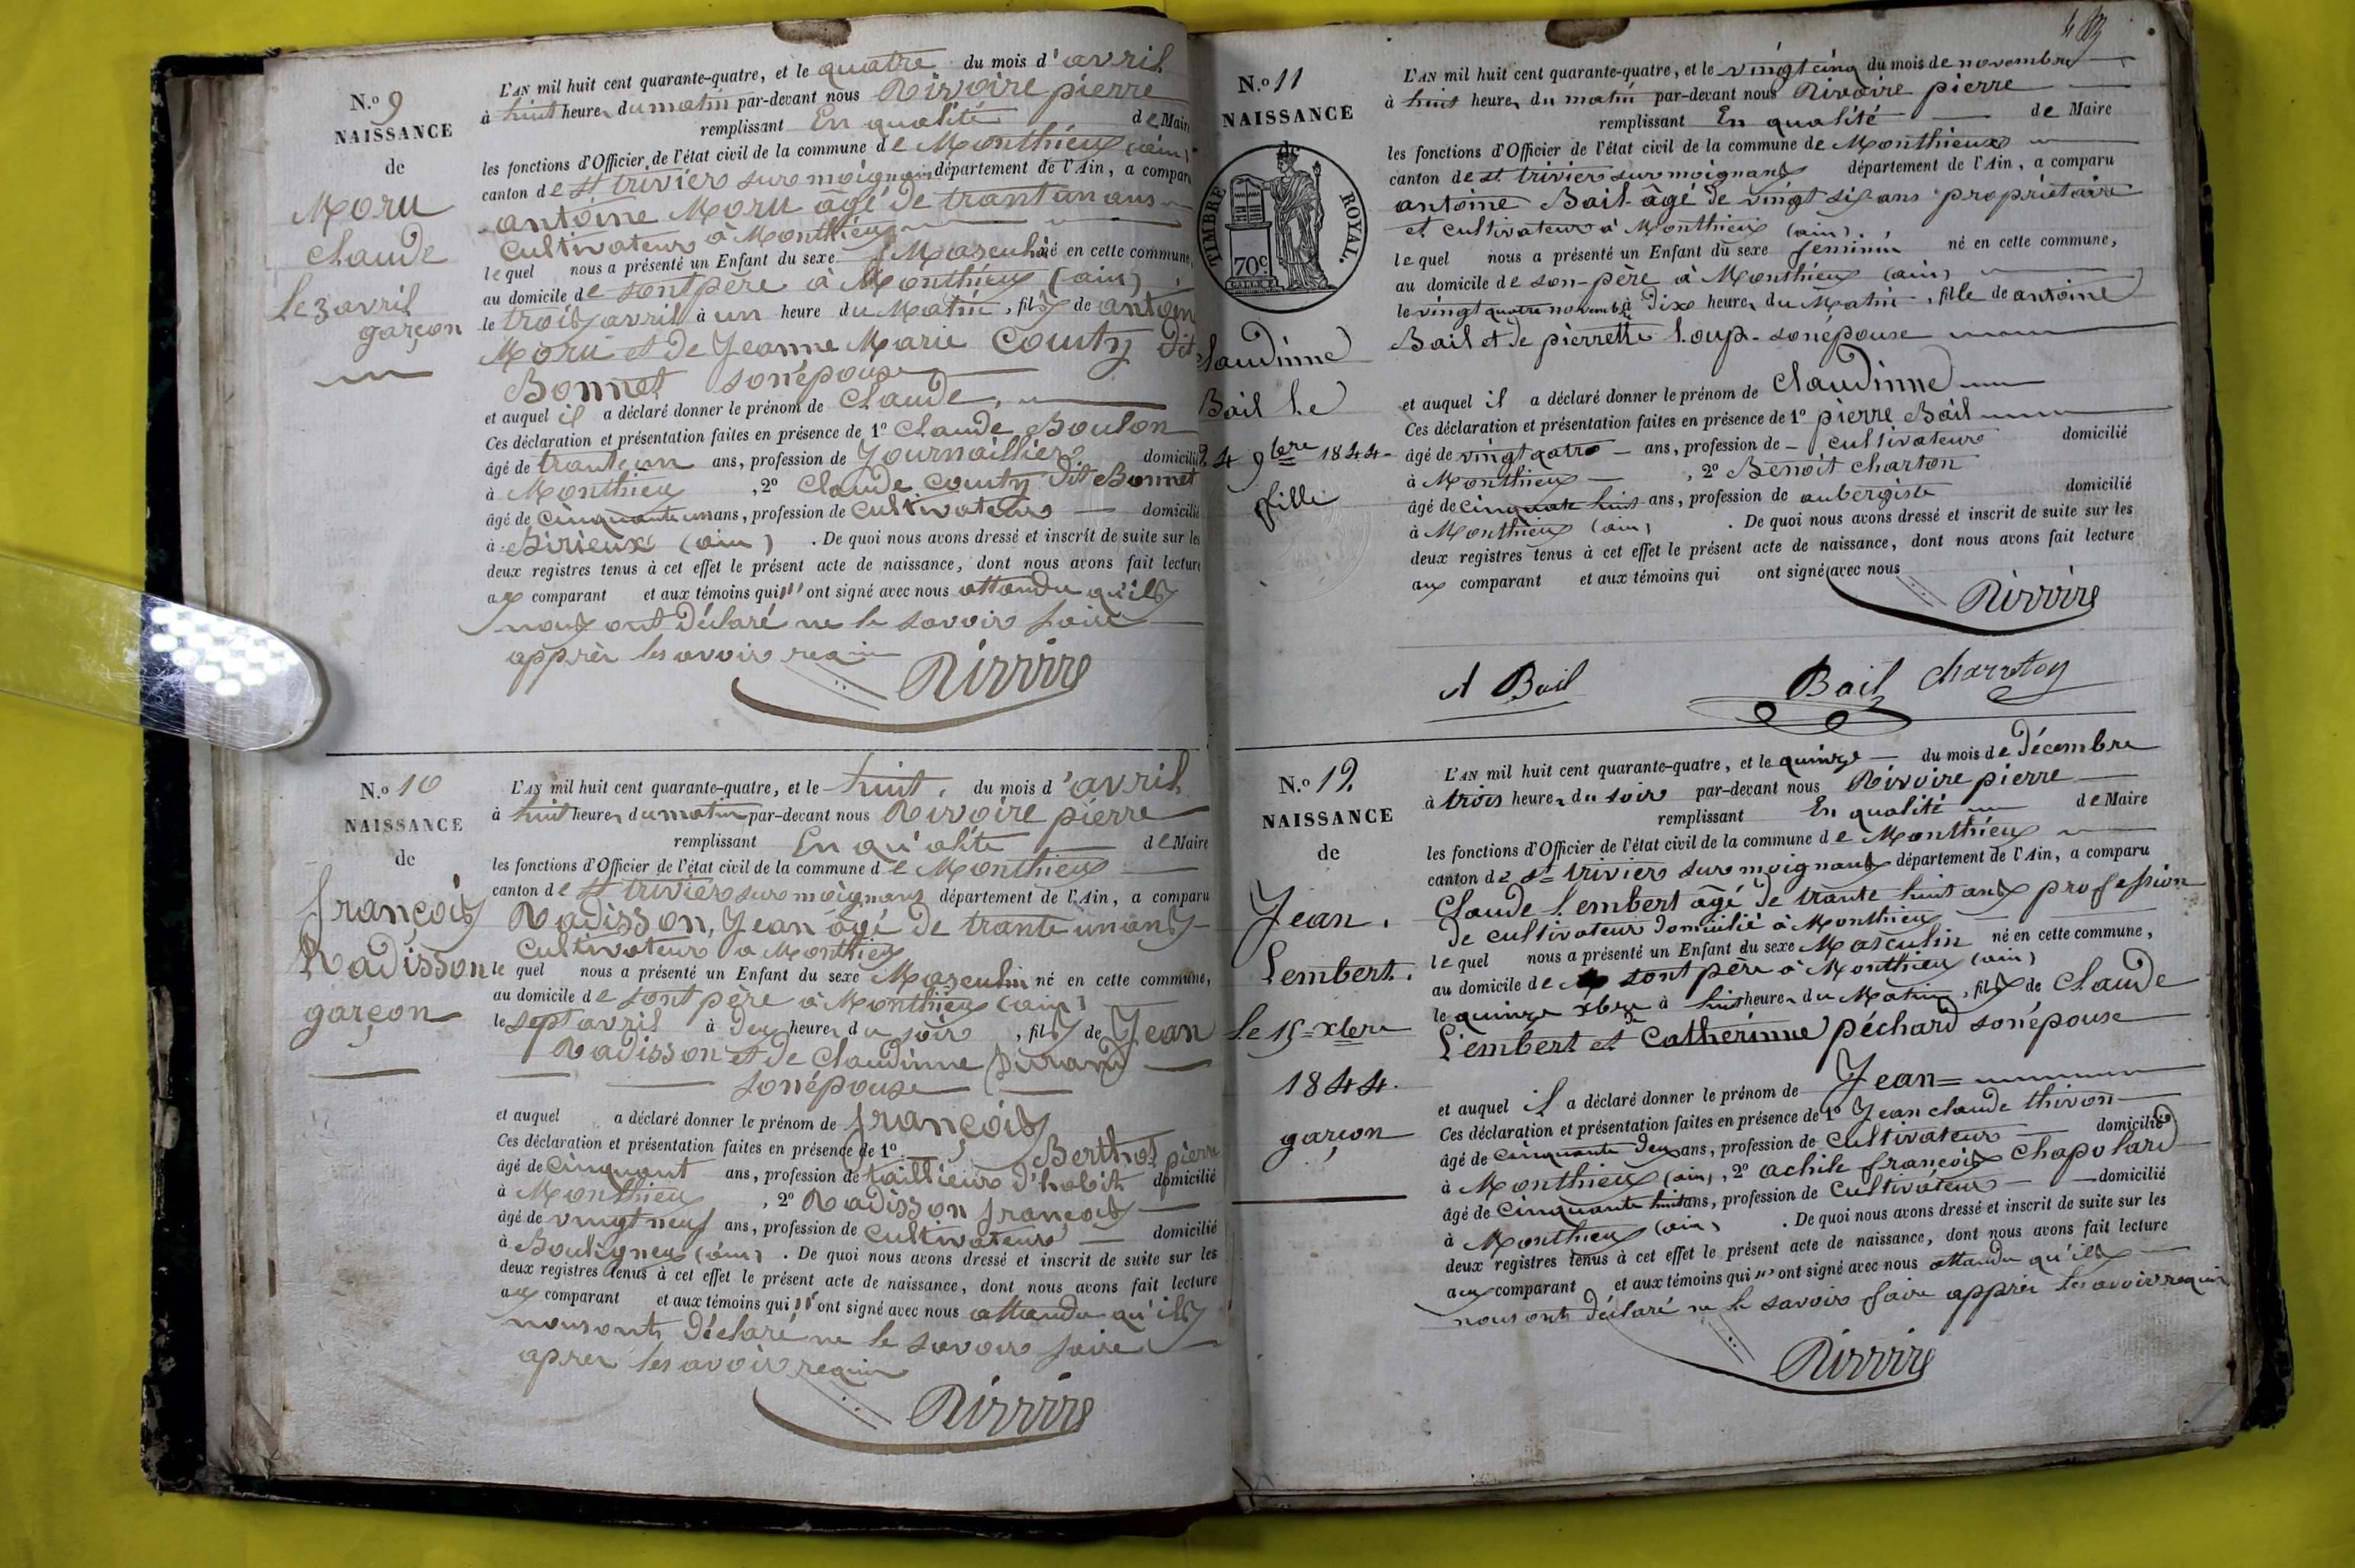 N.o 9
NAISSANCE
de
Moru
Claude
le 3 avril
garçon
L'AN mil huit cent quarante-quatre, et le quatre du mois d'avril
à huit heures du matin par-devant nous Rivoire pierre
remplissant En qualité de Maire
les fonctions d'Officier de l'état civil de la commune de Monthieux (ain)
canton de st trivier sur moignans département de l'Ain, a comparu
antoine Moru âgé de trant un ans
Cultivateur à Monthieux
lequel nous a présenté un Enfant du sexe Masculin né en cette commune,
au domicile de sont père à Monthieux (ain)
le trois avril à un heure du Matin, fils de antoin
Moru et de Jeanne Marie Courty dit
Bonnet son épouse
et auquel il a déclaré donner le prénom de Claude,
Ces déclaration et présentation faites en présence de 1o Claude Boulon
âgé de trante un ans, profession de Journaillier domicilié
à Monthieux, 2o Claude Courty dit Bonnet
âgé de cinquante un ans, profession de cultivateur domicilié
à Birieux (ain). De quoi nous avons dressé et inscrit de suite sur les
deux registres tenus à cet effet le présent acte de naissance, dont nous avons fait lecture
aux comparant et aux témoins qui n' ont signé avec nous attandu qu'ils
nous ont déclaré ne le savoir faire
apprèr les avoir requi
Rivoire
N.o 10
NAISSANCE
de
françois
Radisson
garçon
L'AN mil huit cent quarante-quatre, et le huit du mois d'avril
à huit heures du matin par-devant nous Rivoire pierre
remplissant En qu'alité de Maire
les fonctions d'Officier de l'état civil de la commune de Monthieux
canton de st trivier sur moignans département de l'Ain, a comparu
Radisson, Jean âgé de trante un ans
Cultivateur à Monthieux
lequel nous a présenté un Enfant du sexe Masculin né en cette commune,
au domicile de sont père à Monthieux (ain)
le sept avril à deux heures du soir, fils de Jean
Radisson et de Claudinne Durand
son épouse
et auquel a déclaré donner le prénom de françois
Ces déclaration et présentation faites en présence de 1o Berthot pierre
âgé de Cinquant ans, profession de taillieur d'habit domicilié
à Monthieux, 2o Radisson françois
âgé de vingt neuf ans, profession de Cultivateur domicilié
à Bouligneux (ain). De quoi nous avons dressé et inscrit de suite sur les
deux registres tenus à cet effet le présent acte de naissance, dont nous avons fait lecture
aux comparant et aux témoins qui n' ont signé avec nous attandu qu'ils
nous onts déclaré ne le savoir faire
aprer les avoir requi
Rivoire
N.o 11
NAISSANCE
de
TIMBRE ROYAL.
70c
Claudinne
Bail le
24 9bre 1844
fille
L'AN mil huit cent quarante-quatre, et le vingt cinq du mois de novembre
à huit heures du matin par-devant nous Rivoire pierre
remplissant En qualité de Maire
les fonctions d'Officier de l'état civil de la commune de Monthieux
canton de st trivier sur moignans département de l'Ain, a comparu
antoine Bail âgé de vingt six ans propriétaire
et cultivateur à Monthieux (ain)
lequel nous a présenté un Enfant du sexe feminin né en cette commune,
au domicile de son père à Monthieux (ain)
le vingt quatre novembre à dix heures du Matin, fille de antoine
Bail et de pierrette Loup son épouse
et auquel il a déclaré donner le prénom de Claudinne
Ces déclaration et présentation faites en présence de 1o pierre Bail
âgé de vingt qatre ans, profession de cultivateur domicilié
à Monthieux, 2o Benoit Charton
âgé de cinquate huit ans, profession de aubergiste domicilié
à Monthieux (ain). De quoi nous avons dressé et inscrit de suite sur les
deux registres tenus à cet effet le présent acte de naissance, dont nous avons fait lecture
aux comparant et aux témoins qui ont signé avec nous
Rivoire
A Bail Bail Charreton
N.o 12
NAISSANCE
de
Jean
Lembert.
le 15 xbre
1844
garçon
L'AN mil huit cent quarante-quatre, et le quinze du mois de Décembre
à trois heures du soir par-devant nous Rivoire pierre
remplissant En qualité de Maire
les fonctions d'Officier de l'état civil de la commune de Monthieux
canton de st trivier sur moignans département de l'Ain, a comparu
Claude Lembert âgé de trante huit ans profession
de cultivateur domicilié à Monthieux
lequel nous a présenté un Enfant du sexe Masculin né en cette commune,
au domicile de sont père à Monthieux (ain)
le quinze xbre à huit heures du Matin, fils de Claude
Lembert et de Catherinne péchard son épouse
et auquel il a déclaré donner le prénom de Jean
Ces déclaration et présentation faites en présence de 1o Jean claude thivon
âgé de cinquante deux ans, profession de Cultivateur domicilié
à Monthieux (ain), 2o achile françois Chapolard
âgé de Cinquante huit ans, profession de Cultivateur domicilié
à Monthieux (ain). De quoi nous avons dressé et inscrit de suite sur les
deux registres tenus à cet effet le présent acte de naissance, dont nous avons fait lecture
aux comparant et aux témoins qui n' ont signé avec nous attandu qu'ils
nous onts déclaré ne le savoir faire apprèr les avoir requi
Rivoire